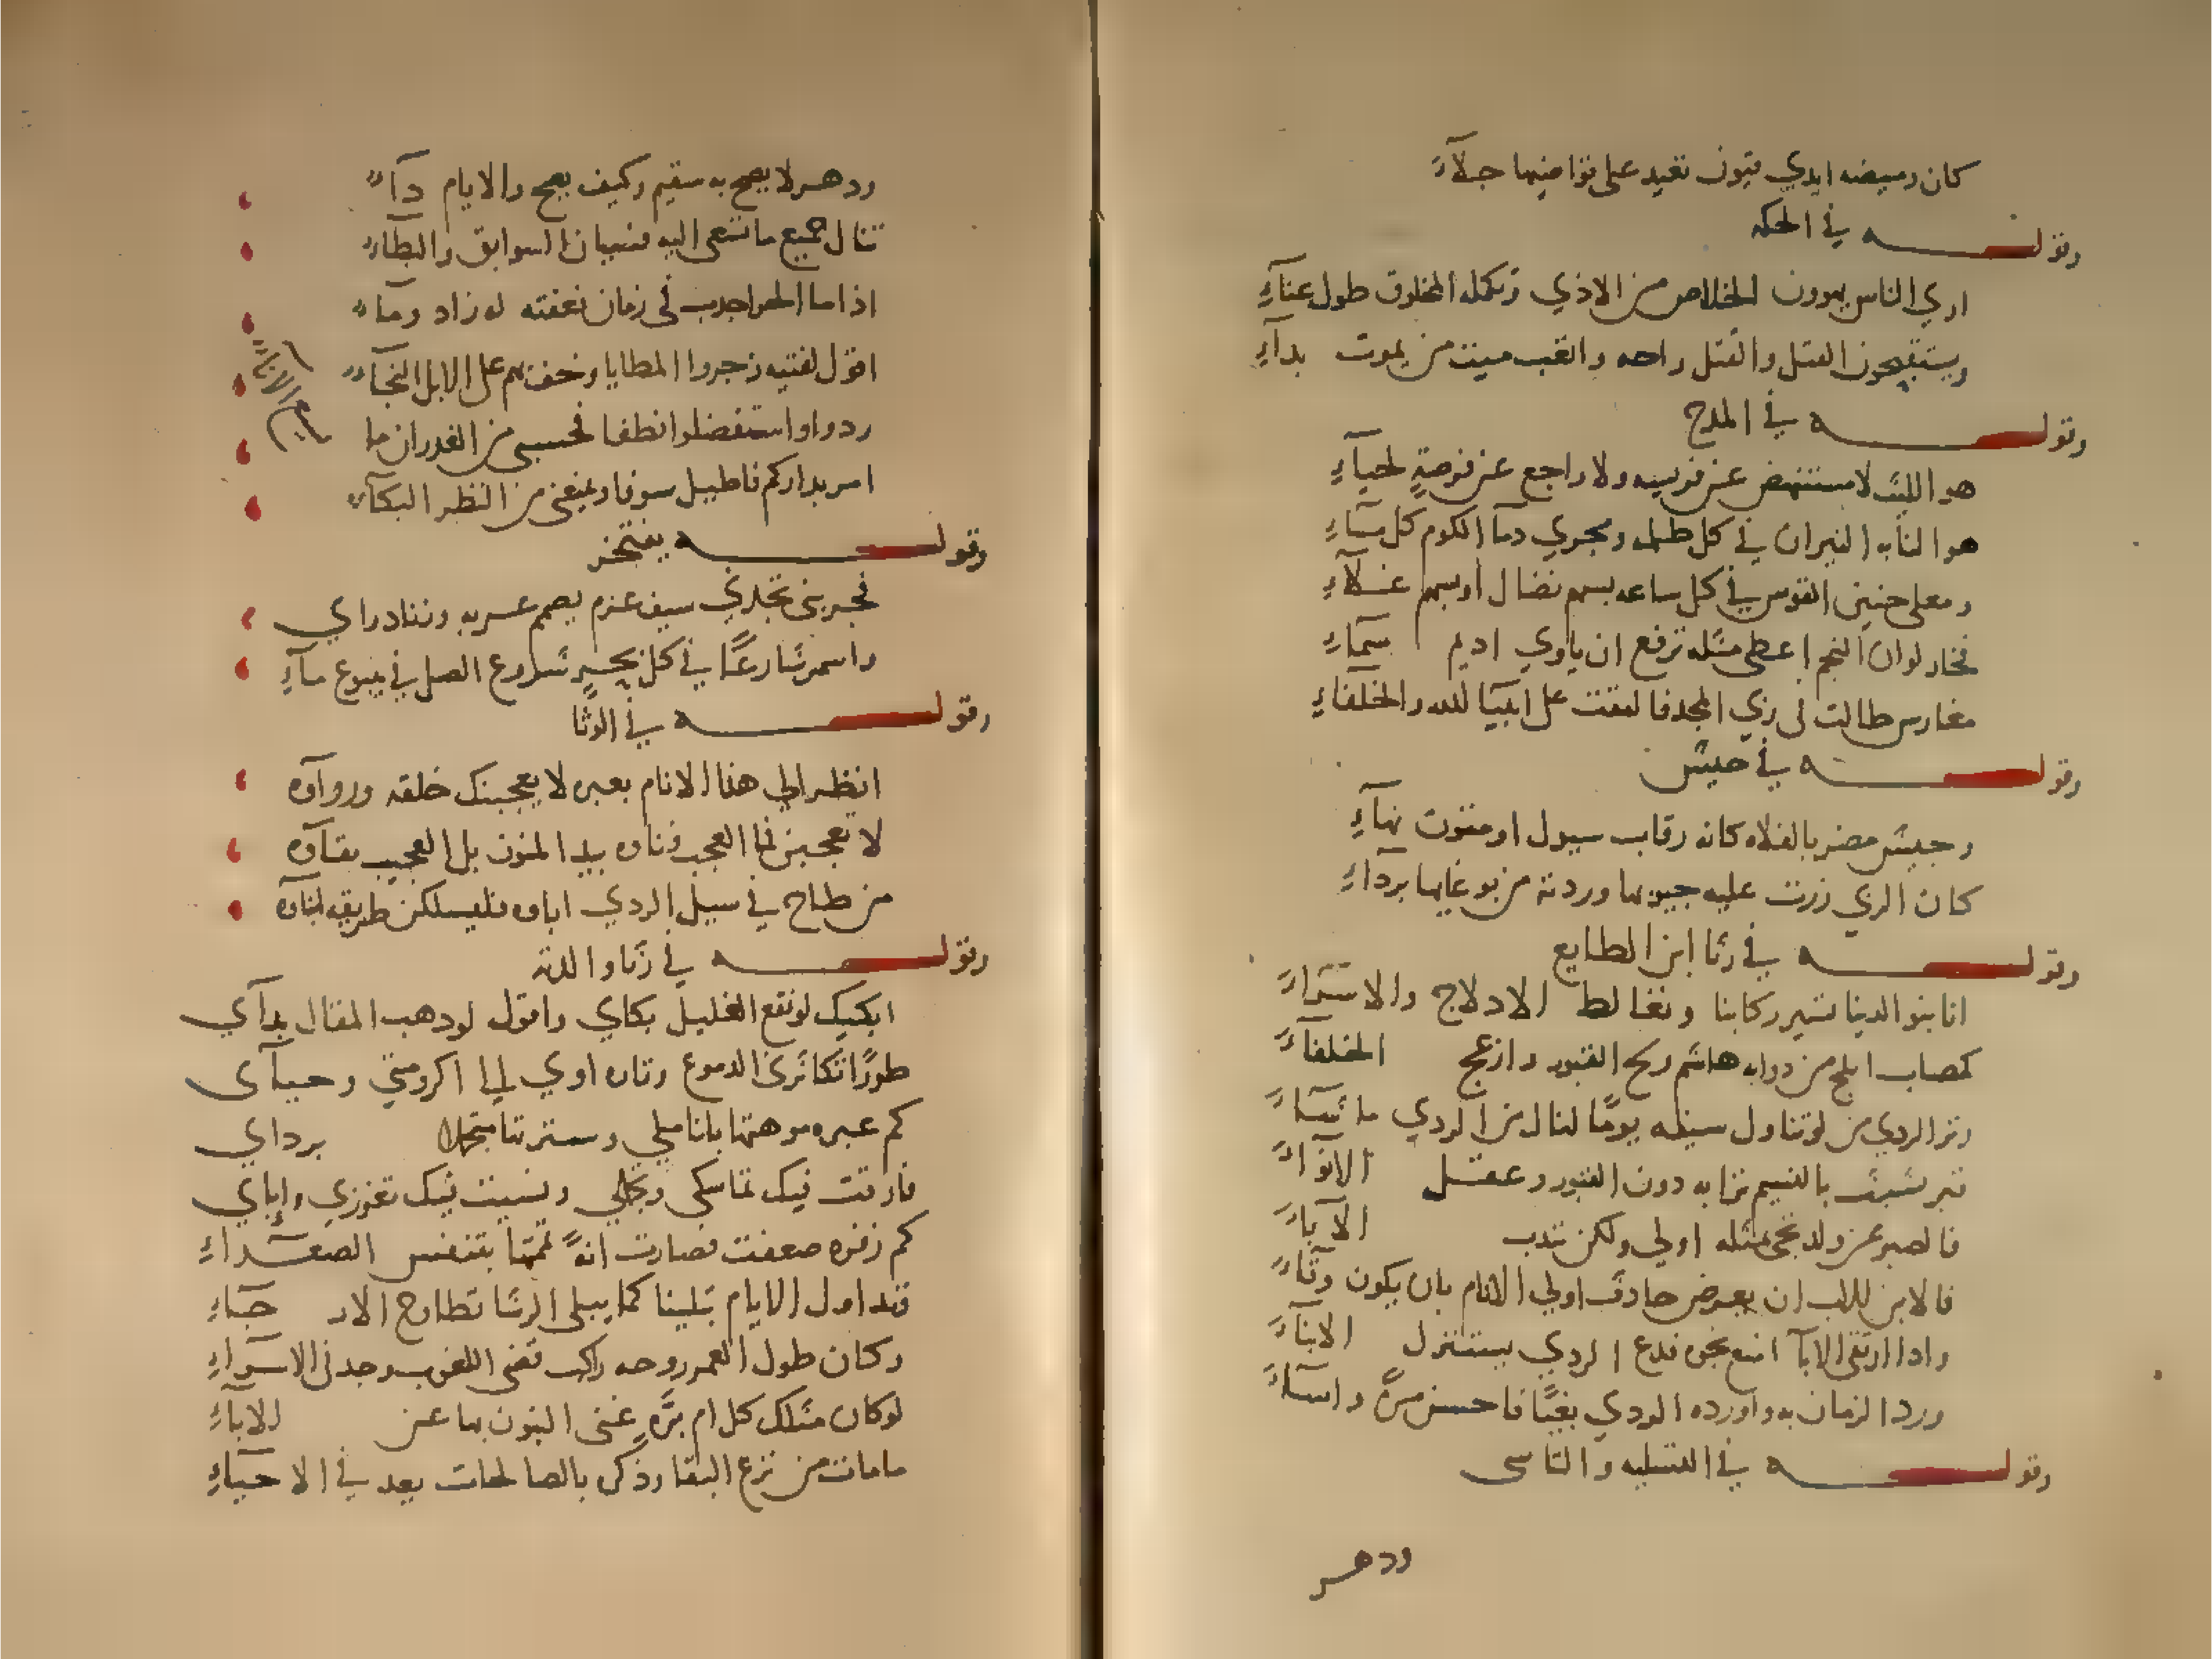 كان وميضه ايدي قيون تعيد على قواضبها جلآءً
وقولـــه في الحكمه
اري الناس يهوون الخلاص من الاذي وتكمله المخلوق طول عنآءِ
ويستقبحون القتل والقتل راحه واتعب ميت من يموت بدآءِ
وقولـــه في المدح
هو الليث لا مستنهض عن فريسه ولا راجع عن فرصةٍ لحيآءِ
هو النابه النيران في كل ظلمه ومجري دمآ الكوم كل مسآءِ
ومعلي حنين القوس في كل ساعه بسهم نضال او بسهم غـلآءِ
فخار لو ان النجم اعطي مثله ترفع ان ياوي اديم سمآءِ
مغارس طالت في ربي المجد فالتقت علي انبيآ لله والخلفآءِ
وقولـــه في جيش
وجيش مضر بالفلاه كانه رقاب سيول او متون نهآءِ
كان الربي زرت عليه جيوبها وردته من بوغايها بردآءِ
وقولـــه في رثا ابن الطايع
انا بنو الدنيا تسير ركابنا وتغالط الادلاج والاسـرآءً
كمصاب ابلج من دوابه هاشم ولج القبور وازعج الخلفآءً
وتر الردي من لو تناول سيفه يومًا لنال من الردي ما شـآءً
قبر تشبث بالنسيم ترابه دون القبور وعقـل الانوآءً
فالصبر عن ولد نجي بمثله اولي ولكن تندب الآبآءً
فالابن للاب ان يعرض حادث اولي الانام بان يكون وقآءً
واذا ارتقي الابآ امنع نجوه فدع الردي يستنزل الابنآءً
ورد الزمان به واورده الردي بغيًا فاحسن مرهً واسـآءً
وقولـــه في التسليه والتاسى
ودهـر
ودهـر لا يصح به سقيم وكيف يصح والايام دآءٌ
تنال جميع ما تسعى اليه فسيان السوابق والبطآءُ
اذا ما الحر اجدب في زمان فعفته له زاد ومآءٌ
اقول لفتيه زجروا المطايا وخف بهم على الابل النجآءُ
ردوا واستفضلوا نطفا فحسبي من الغدران ما
امر بداركم فاطيل سوفا ويمنعني من النظر البكآءُ
وسع الانآءُ
وقولـــه يفتخر
فجربني تجدني سيف عزم يصمم غـربه وزناد راي
واسمر شارعًا في كل نحـرٍ شروع الصل في ينبوع مآءِ
وقولـــه في الرثا
انظر الي هذا الانام بعبره لا يعجبنك خلقه وروآوه
لا تعجبن فما العجيب فناوه بيد المنون بل العجيب بقآوه
من طاح في سبل الردي اباوه فليسلكن طريقه ابنآوه
وقولـــه في رثا والدته
ابكيك لو نقع الغليل بكاي واقول لو ذهب المقال بدآي
طورًا تكاثرني الدموع وتاره اوي الي اكرومتي وحيـآى
كم عبره موهتها باناملي وسترتها متجملا برداي
فارقت فيك تماسكى وتجملي ونسيت فيك تعززي واباي
كم زفره ضعفت فصارت انهً تممتها بتنفس الصعـدآءِ
قد اول الايام تبلينا كما يبلي الرشا تطاوح الار جـآءِ
وكان طول العمر روحه راكب قضى اللغوب وجد في الاسـرآءِ
لو كان مثلك كل ام برّهٍ غنى البنون بها عـن الابآءِ
ما مات من نزع البقا وذكره بالصالحات يعد في الاحيـآءِ